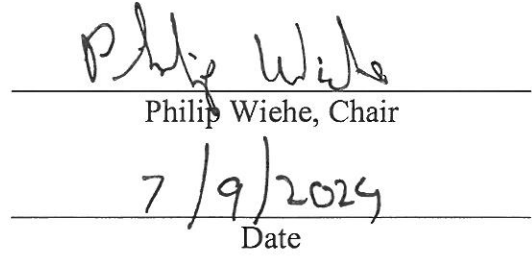 Philip Wiehe
Philip Wiehe, Chair
7/9/2024
Date